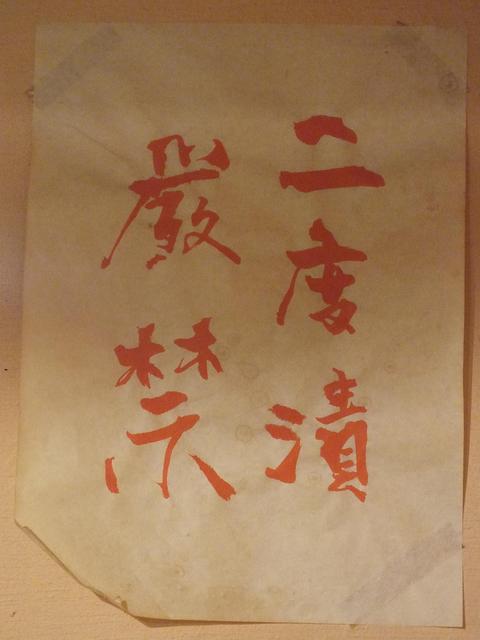 二度漬
嚴禁